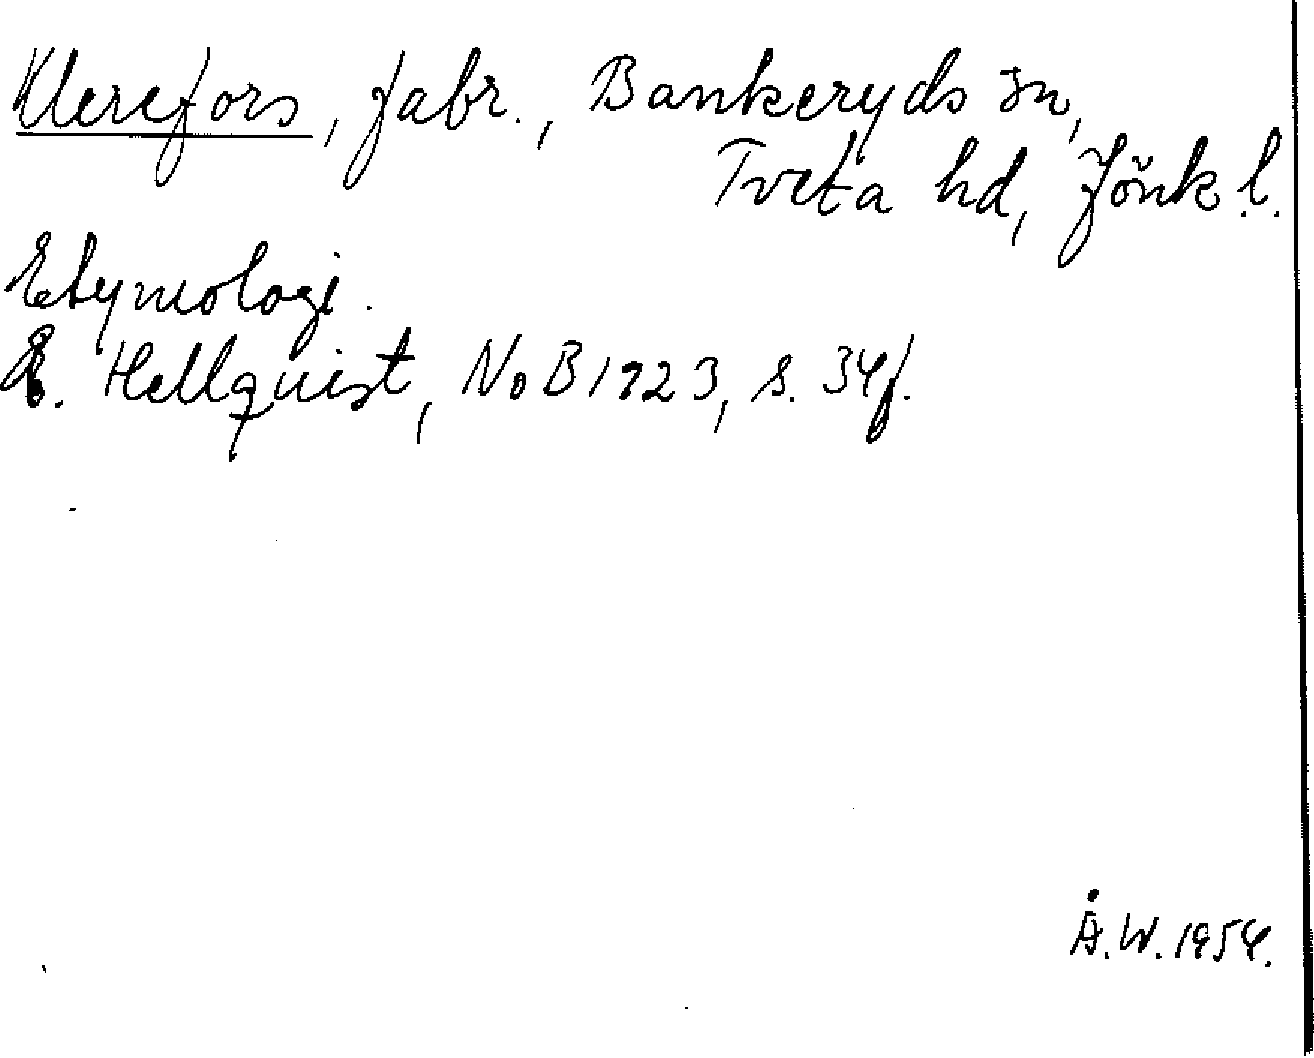 Klerefors, fabr., Bankeryds sn,
Tveta hd, Jönk. l.
Etymologi.
E. Hellquist, NoB 1923, s. 34f.
Å.W. 1954.